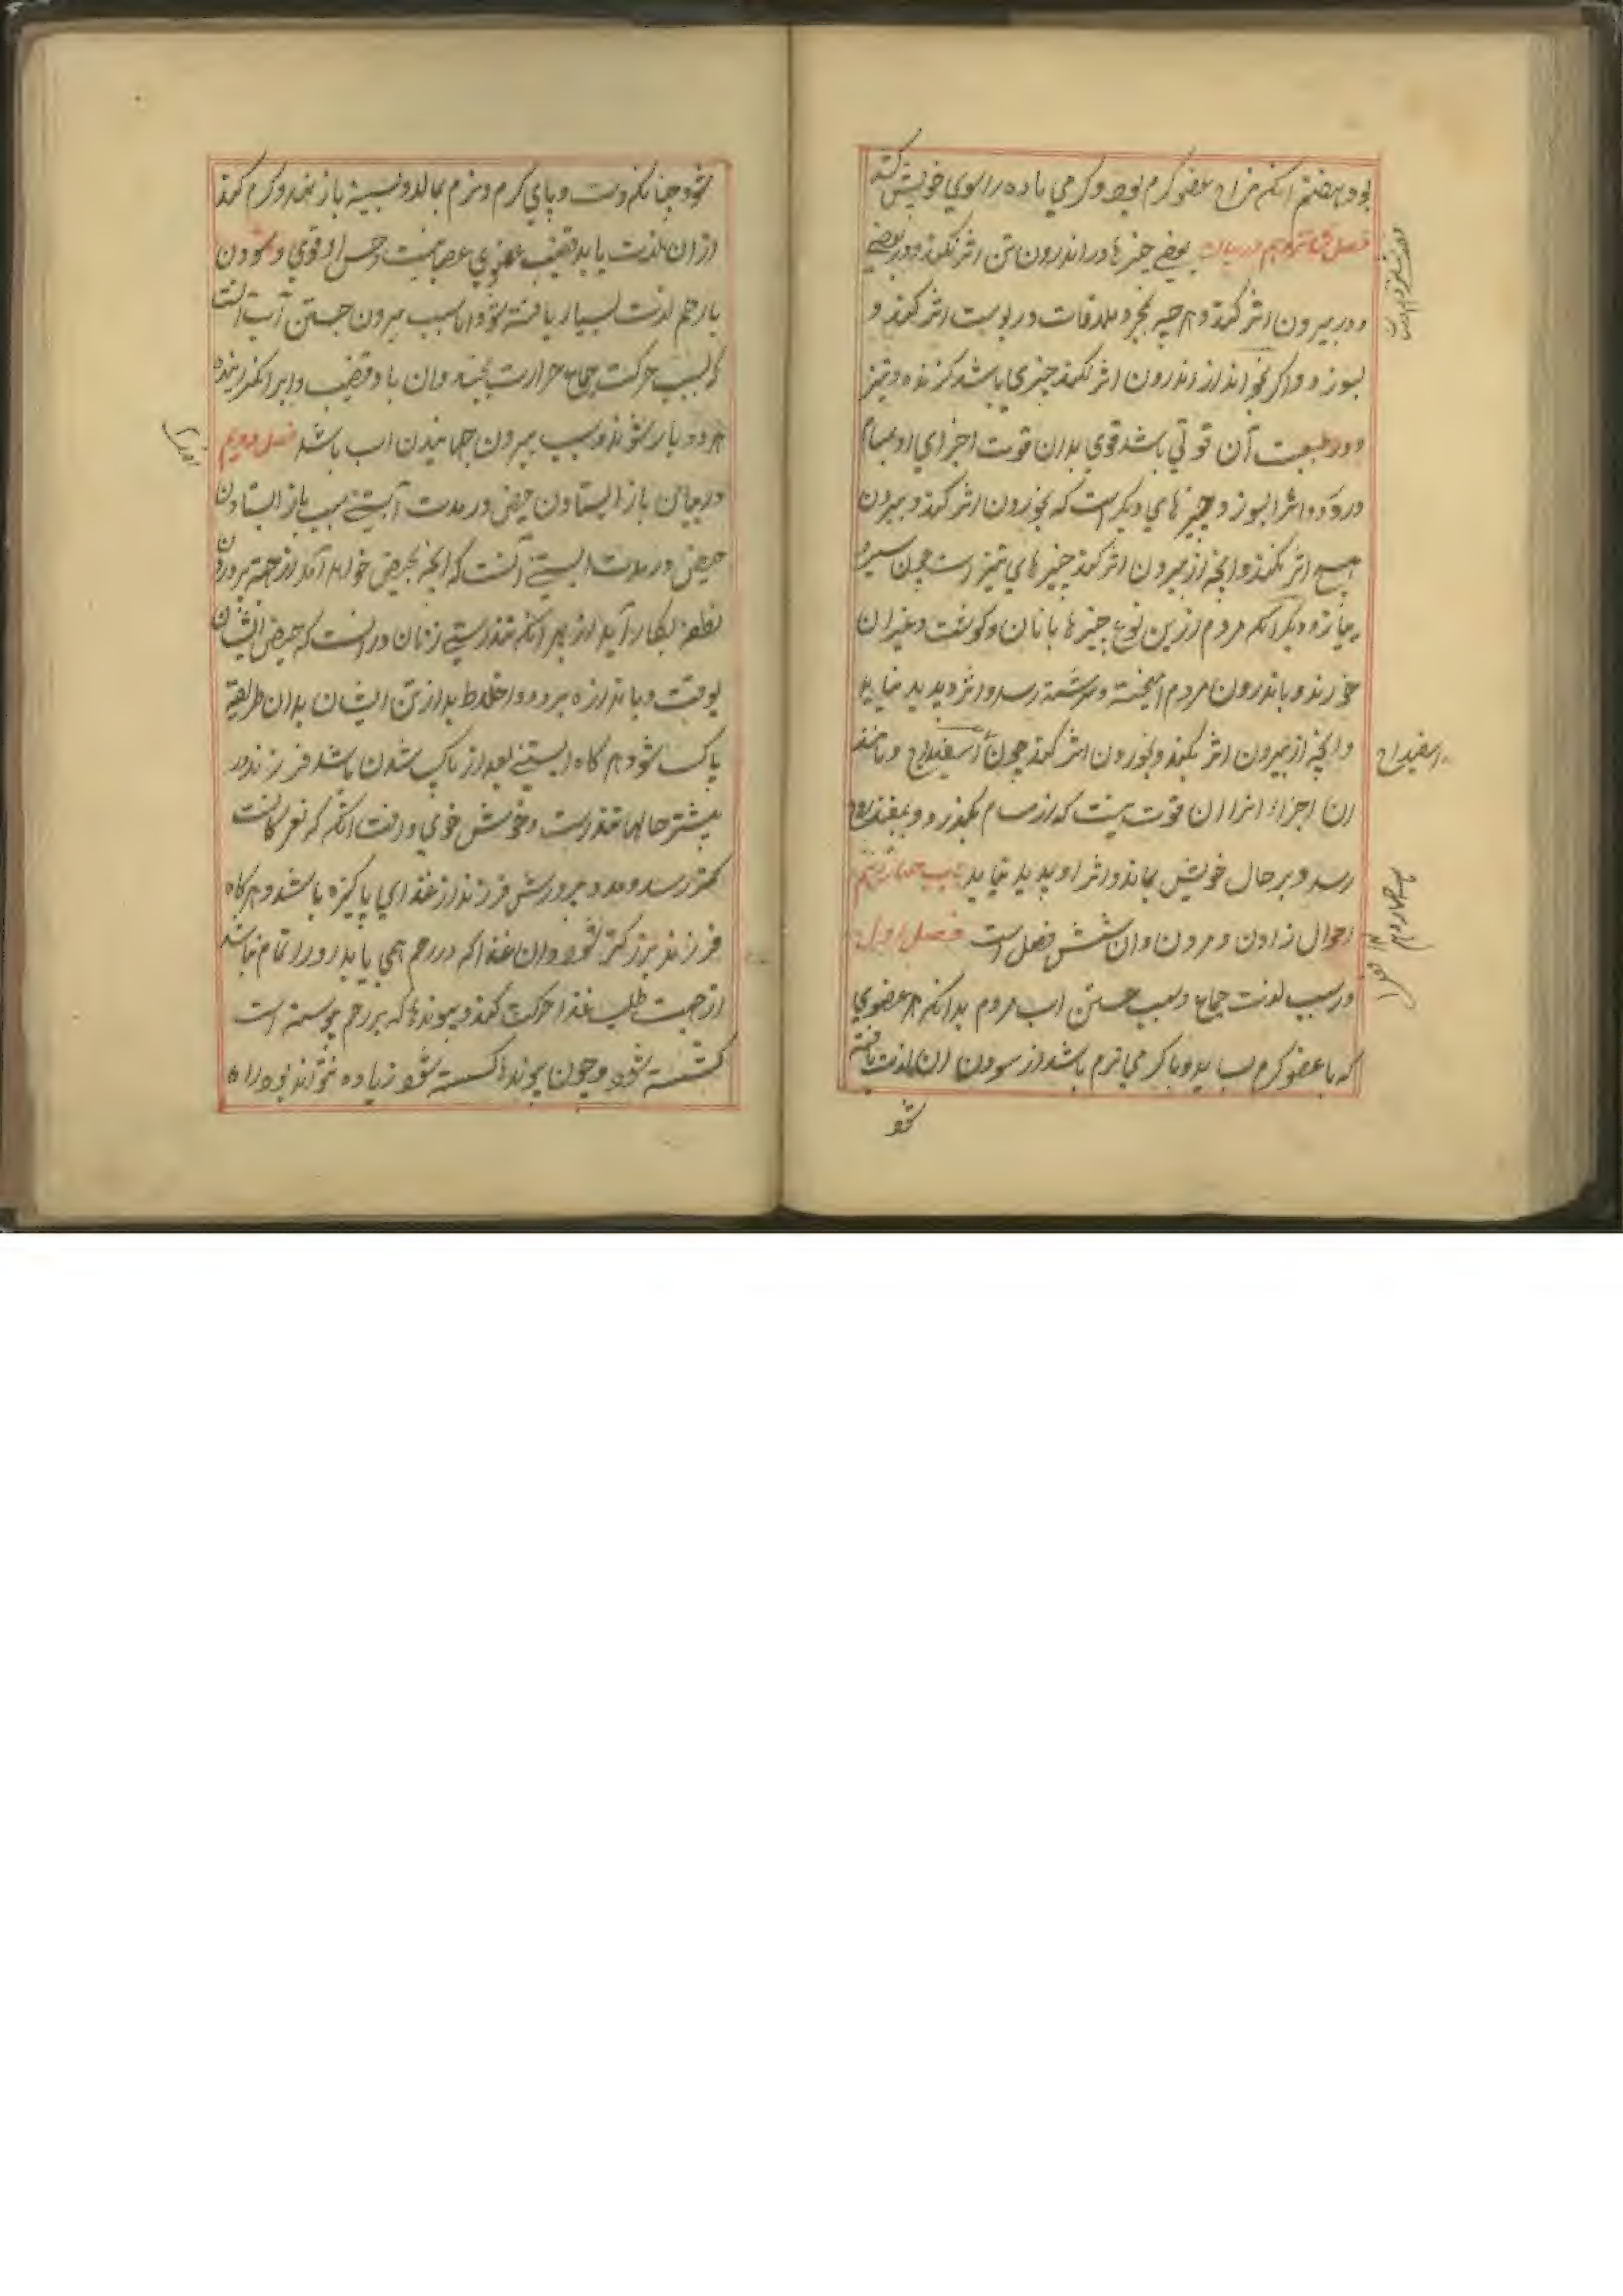 بود هفتم آنکه مزاج عضو گرم بود و گرمی ماده را سوی خویش کشد
فصل شانزدهم در بیان بعضی چیزها در اندرون تن اثر نکند و در بعضی
و در بیرون اثر کند و هرچه بمجرد ملاقات در پوست اثر کند و
بسوزد و اگر بخورند از اندرون اثر نکند چیزی باشد گزنده و تیز
و در طبیعت آن قوتی باشد قوی بدان قوت اجزای او بمسام
در رود و انرا بسوزد و چیزهای دیگر است که بخوردن اثر کند و بیرون
هیچ اثر نکند و انچه از بیرون اثر کند چیزهای تیز است چون سیر و
پیاز و دیگر آنکه مردم ازین نوع چیزها با نان و گوشت و غیر ان
خورند و باندرون مردم آمیخته و سرشته رسد و اثر پدید نیاید
و انچه از بیرون اثر نکند و بخوردن اثر کند چون اسفیداج و مانند
ان اجزاء انرا ان قوت نیست که از مسام بگذرد و
رسد و بر حال خویش بماند و اثر او پدید نیاید باب چهاردهم
احوال زادن و مردن و ان شش فصل است فصل اول
در سبب لذت جماع و سبب جستن اب مردم بدانکه هر عضوی
که با عضو گرم بساید و با گرمی نرم باشد از سودن ان لذت یافته
شو
اسفیداج
باب چهاردهم
شود چنانکه دست و پای گرم و نرم بمالد و بسینه باز نهد و گرم کند
از ان لذت یابد قضیب عضوی عصبانیست و حس او قوی و سودن
با رحم لذت بسیار یافته شود و اما سبب بیرون جستن آب آنست
که بسبب حرکت جماع حرارت بجنبد و ان باد قضیب را برانگیزاننده
هر دو یار شوند و سبب بیرون جهانیدن اب باشد فصل دویم
در بیان باز ایستادن حیض در مدت آبستنی سبب باز ایستادن
حیض در مدت ابستنی آنست که انچه بحیض خواهد آمد از جهة پروردن
نطفه بکار آید از بهر آنکه تندرستی زنان در انست که حیض ایشان
بوقت و باندازه برود و اخلاط بد از تن ایشان بدان طریقه
پاک شود هر گاه ابستنی بعد از پاک شدن باشد فرزند در
بیشتر حالها تندرست و خوش خوی و رفت آنکه
کمتر رسد و مدد و پرورش فرزند از غذای پاکیزه باشد و هر گاه
فرزند بزرگتر شود و ان غذا که در رحم همی یابد او را تمام نباشد
از جهت طلب غذا حرکت کند و پیوندها که بر رحم پیوسته است
گسسته شود و چون پیوندها گسسته شود زیاده نتواند بود راه